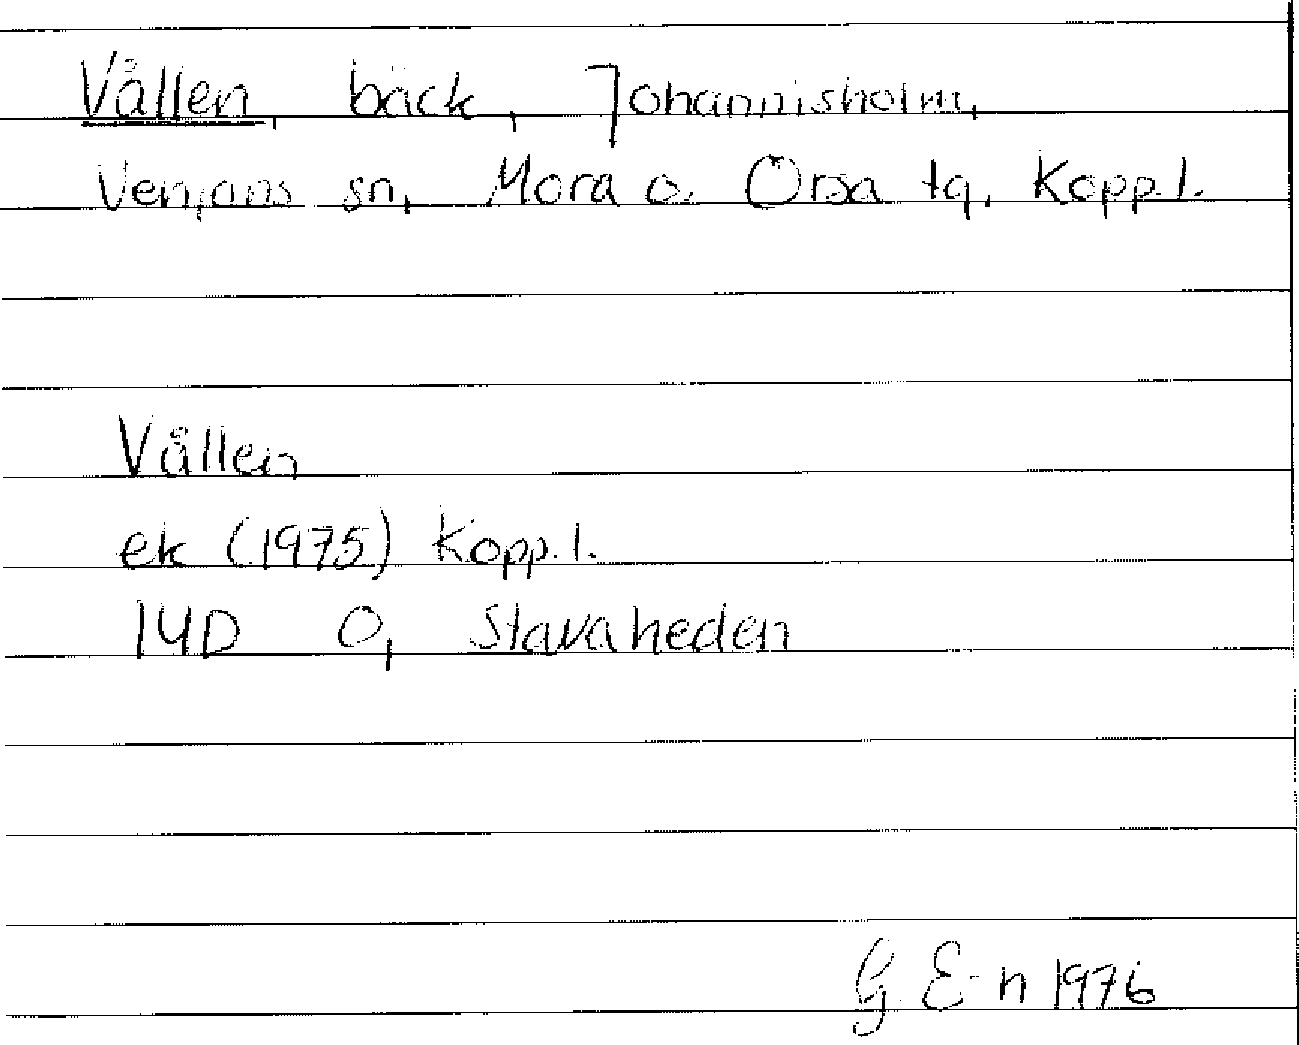 Vållen, bäck, Johannisholm,
Venjans sn, Mora o. Orsa tg, Kopp.l.
Vållen
ek (1975) Kopp.l.
14D O, Stavaheden
G. E-n 1976